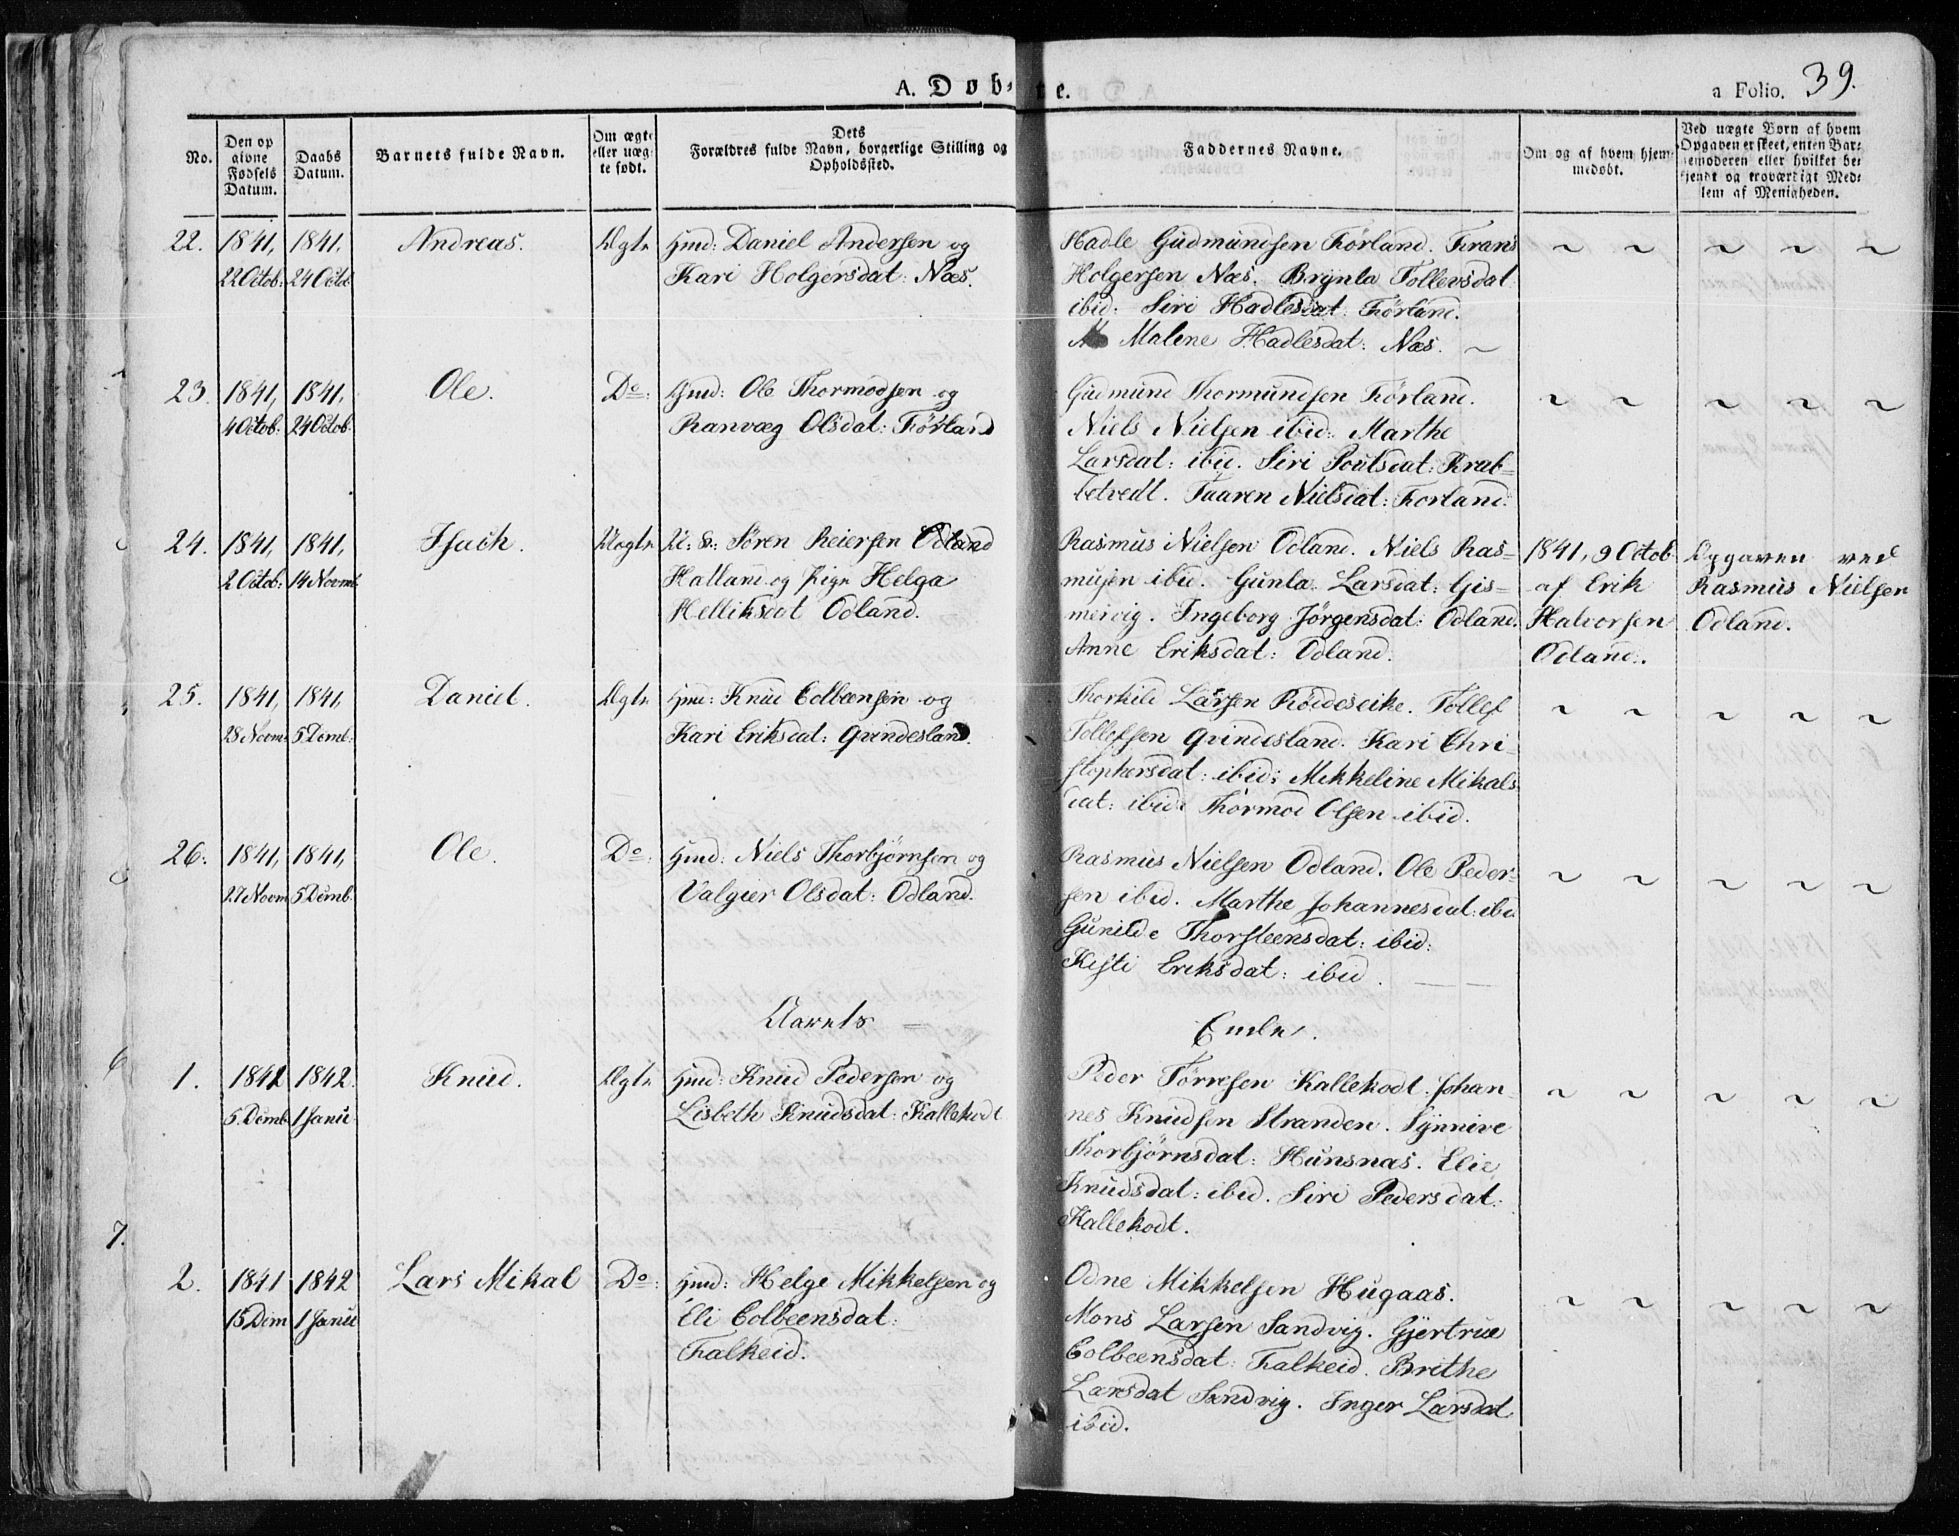 A. Døb-te.
a Folio. 39.
No.
Den op
givne
Fødsels
Datum.
Daabs
Datum.
Barnets fulde Navn.
Om ægte
eller uæg-
te født.
Dets
Forældres fulde Navn, borgerlige Stilling og
Opholdssted.
Faddernes Navne.
Om og af hvem hjem-
medøbt.
Ved uægte Børn af hvem
Opgaven er skeet, enten Bar-
nemoderen eller hvilket be-
kjendt og troværdigt Med-
lem af Menigheden.
22. 1841, 1841, Andreas. Ægte Gmd: Daniel Andersen og
22 Octob: 24 Octob Kari Holgersdat: Næs.
Hadle Gudmundsen Førland. Frans
Holgersen Næs. Brynla Tollevsdat
ibid: Siri Hadlesdat: Førland.
Malene Hadlesdat: Næs. ~
23. 1841, 1841, Ole. Do: Gmd: Ole Thormodsen og
4 Octob: 24 Octob. Ranvæg Olsdat: Førland
Gudmund Thormundsen Førland.
Niels Nielsen ibid: Marthe
Larsdat: ibid. Siri Poulsdat: Krab-
betvedt. Taaren Nielsdat: Førland.
24. 1841, 1841, Isach. Uægte U: K: Søren Reiersen Odland
2 Octob: 14 Novmb Hatland og Pige Helga
Helliksdat Odland.
Rasmus Nielsen Odland. Niels Ras-
musen ibid. Gunla Larsdat: Gis-
mervig. Ingeborg Jørgensdat: Odland.
Anne Eriksdat: Odland.
1841, 9 Octob
af Erik
Halvorsen
Odland.
Opgaven ved
Rasmus Nielsen
Odland.
25. 1841, 1841, Daniel. Ægte Gmd: Knud Colbeensen og
28 Novm: 5 Demb: Kari Eriksdat: Qvindesland.
Thorkild Larsen Røideseike. Tollef
Tollefsen Qvindesland. Kari Chri-
stophersdat: ibid: Mikkeline Mikals
dat: ibid: Thormod Olsen ibid.
26. 1841, 1841, Ole. Do: Gmd: Niels Thorbjørnsen og
27 Novm 5 Demb. Valgier Olsdat: Odland.
Rasmus Nielsen Odland. Ole Peder-
sen ibid. Marthe Johannesdat: ibid
Gunilde Thorsteensdat: ibid:
Kisti Eriksdat: ibid.
Aarets Ende.
1. 1842 1842. Knud. Ægte Gmd: Knud Pedersen og
5. Demb 1 Janu Lisbeth Knudsdat: Kallekodt
Peder Tørresen Kallekodt. Johan-
nes Knudsen Stranden. Synnive
Thorbjørnsdat: Hunsnæs. Elie
Knudsdat: ibid. Siri Pedersdat:
Kallekodt.
2. 1841 1842 Lars Mikal Do: Gmd: Helge Mikkelsen og
15 Dem 1 Janu Eli Colbeensdat:
Falkeid.
Odne Mikkelsen Hugaas.
Mons Larsen Sandvig. Gjertrue
Colbeensdat: Falkeid. Brithe
Larsdat Sandvig. Inger Larsdat
ibid.